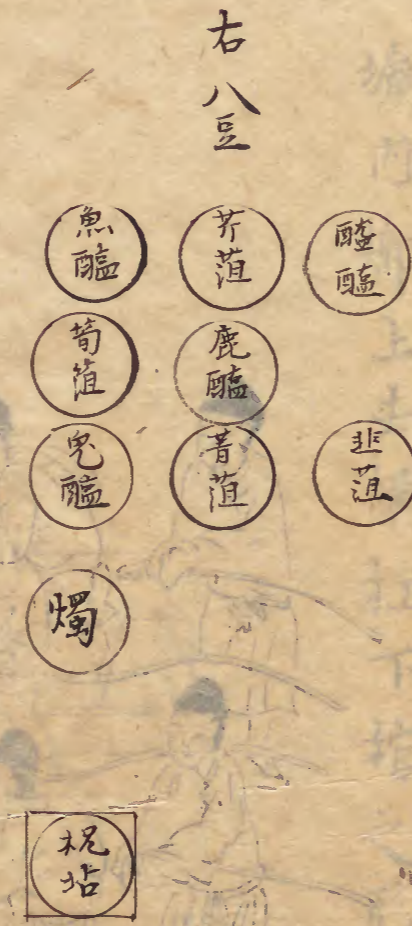 右八豆
醓醢
韭菹
芹菹
鹿醢
菁菹
魚醢
筍菹
兔醢
燭
祝坫